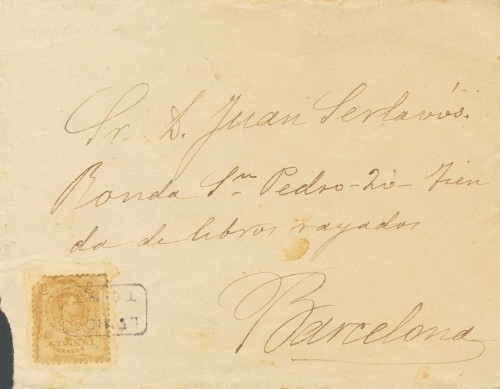 Sr. D. Juan Serlavós.
Ronda Sn Pedro-20- Tien
da de libros rayados
Barcelona